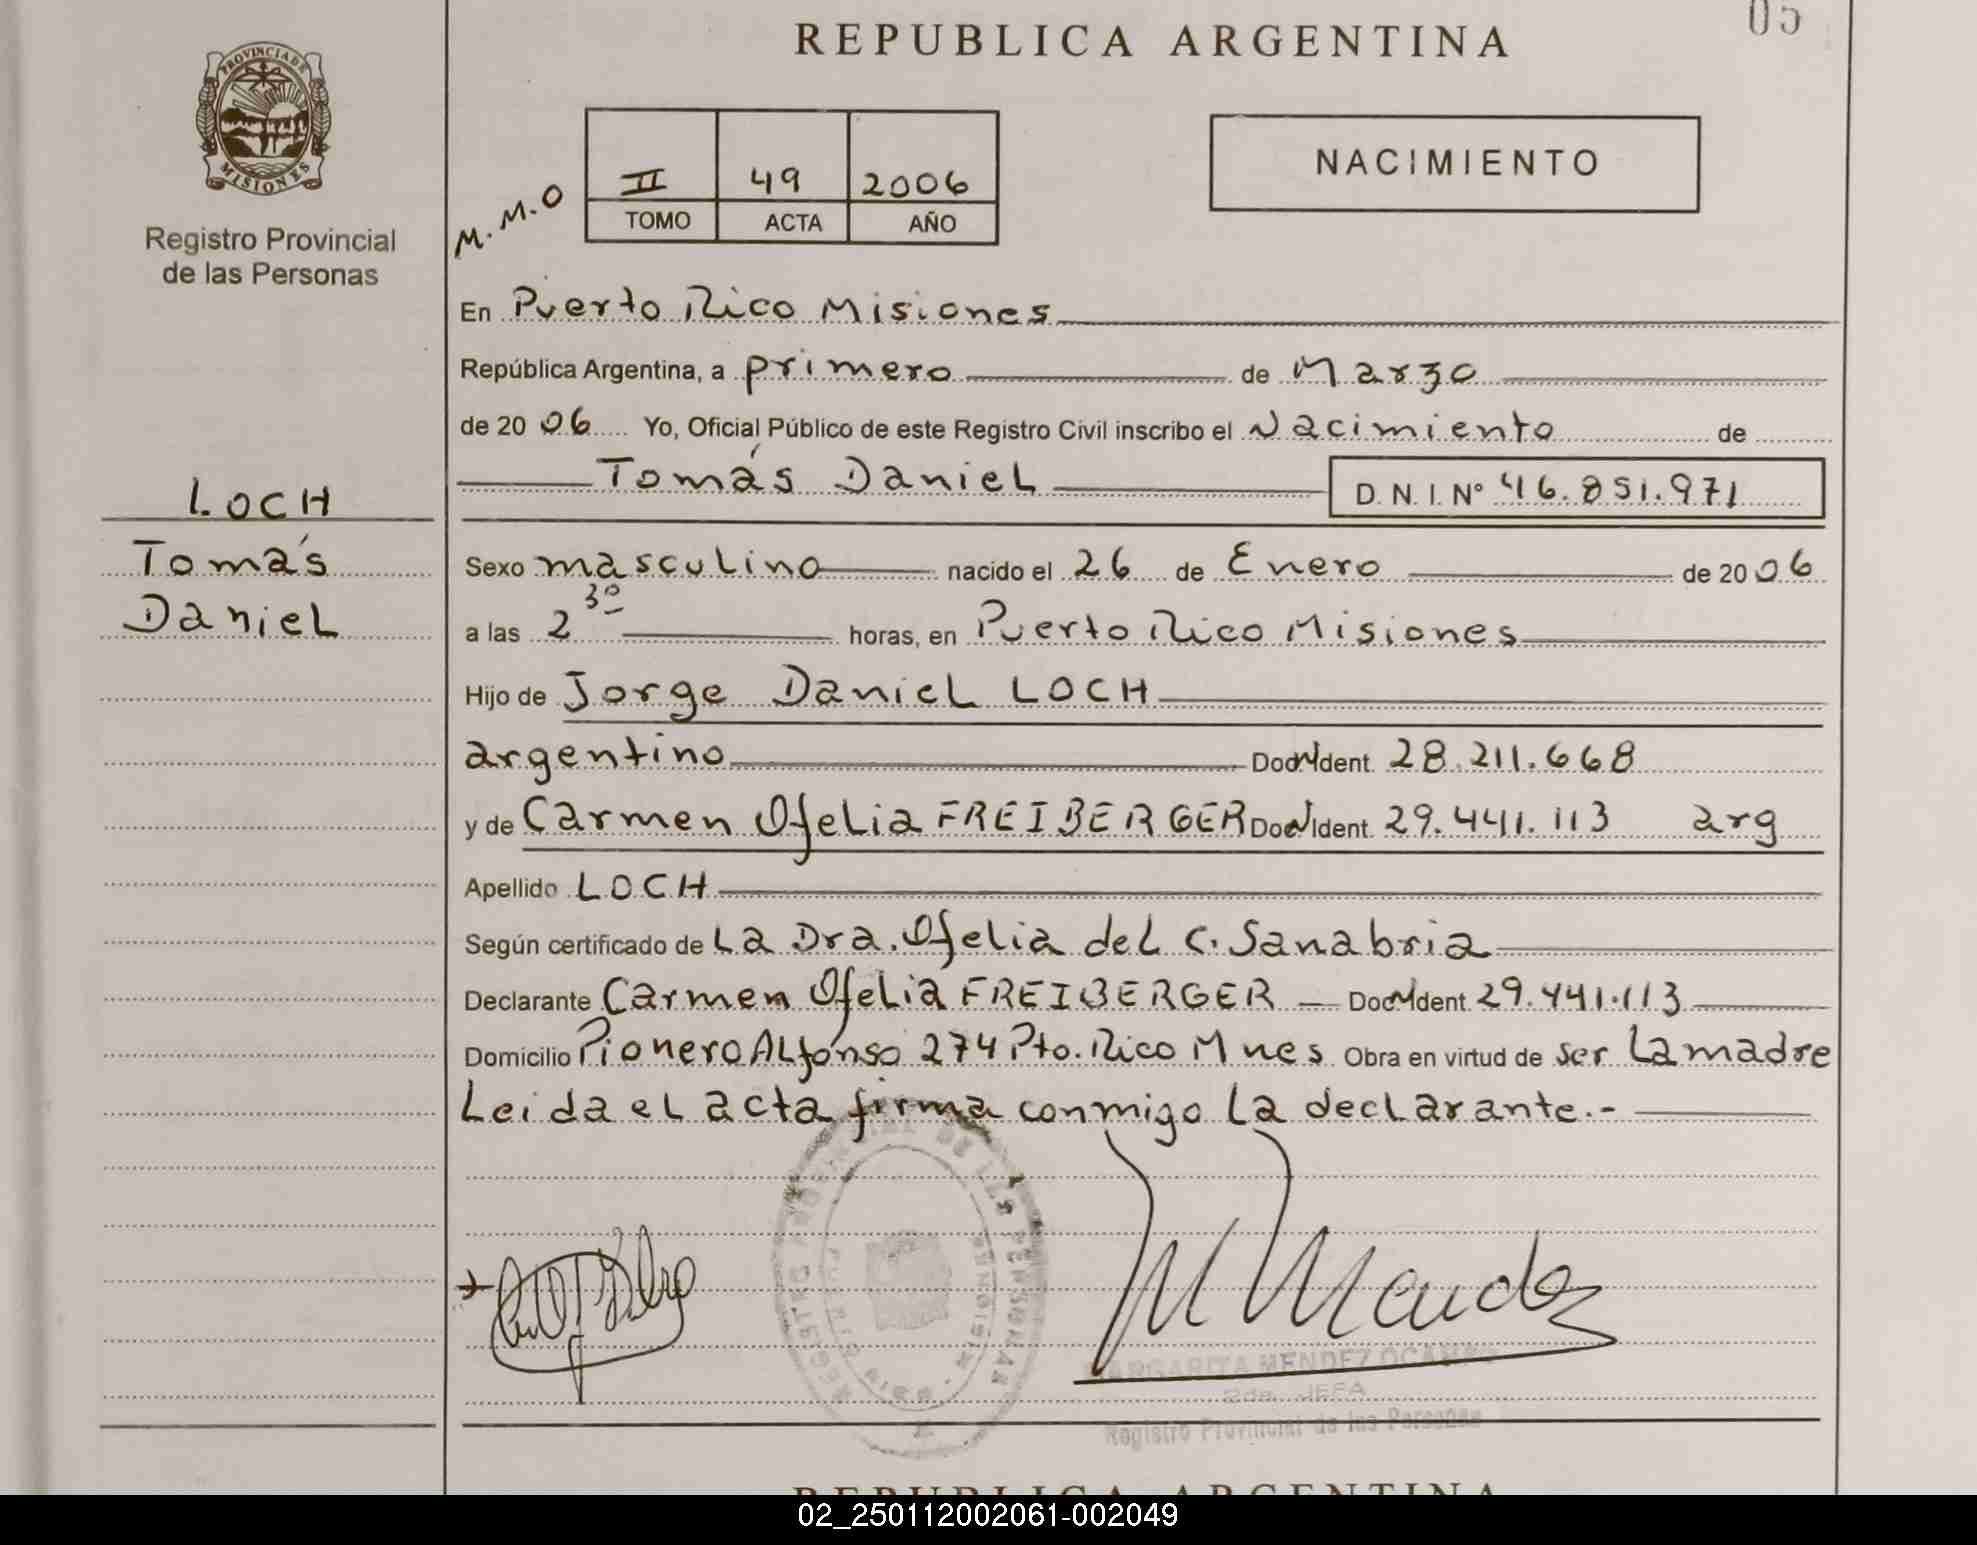 REPUBLICA ARGENTINA
05
PROVINCIA DE
MISIONES
Registro Provincial
de las Personas
M.M.O
II 49 2006
TOMO ACTA AÑO
NACIMIENTO
En Puerto Rico Misiones
República Argentina, a primero de Marzo
de 2006 Yo, Oficial Público de este Registro Civil inscribo el Nacimiento de
Tomás Daniel D.N.I. Nº 46.851.971
LOCH
Tomás
Daniel
Sexo masculino nacido el 26 de Enero de 2006
a las 2 30 horas, en Puerto Rico Misiones
Hijo de Jorge Daniel LOCH
argentino Doc. Ident. 28.211.668
y de Carmen Ofelia FREIBERGER Doc. Ident. 29.441.113 arg
Apellido LOCH
Según certificado de La Dra. Ofelia del C. Sanabria
Declarante Carmen Ofelia FREIBERGER Doc. Ident. 29.441.113
Domicilio Pionero Alfonso 274 Pto. Rico Mnes Obra en virtud de ser La madre
Leida el acta firma conmigo La declarante.-
REGISTRO PROVINCIAL DE LAS PERSONAS
PUERTO RICO - MISIONES
M Mendez
MARGARITA MENDEZ OCAMPO
JEFA
Registro Provincial de las Personas
REPUBLICA ARGENTINA
02_250112002061-002049